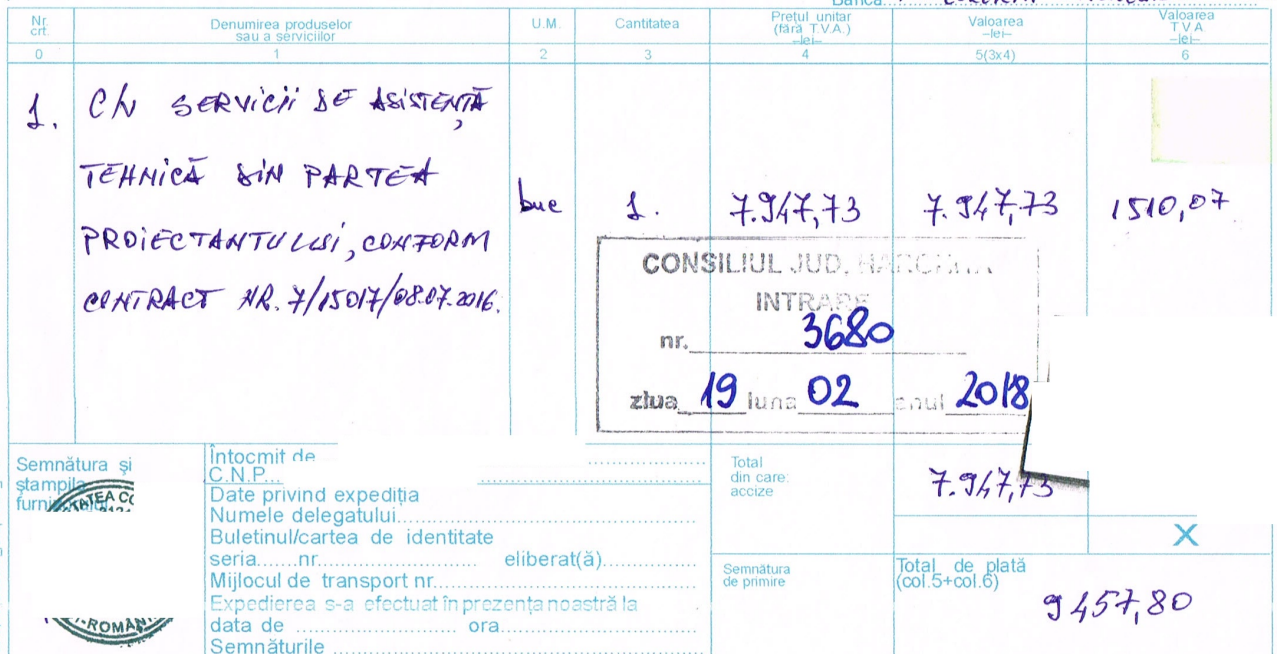 Banca
Nr. crt.
Denumirea produselor sau a serviciilor
U.M.
Cantitatea
Preţul unitar (fără T.V.A.) –lei–
Valoarea –lei–
Valoarea T V A –lei–
0 1 2 3 4 5(3x4) 6
1. C/V SERVICII DE ASISTENȚĂ
TEHNICĂ DIN PARTEA
buc 1. 7.947,73 7.947,73 1510,07
PROIECTANTULUI, CONFORM
CONTRACT NR. 7/15017/08.07.2016.
CONSILIUL JUD. HARGHITA
INTRARE
nr. 3680
ziua 19 luna 02 anul 2018
Semnătura şi
ştampila
furnizorului
Întocmit de
C.N.P...
Date privind expediţia
Numele delegatului
Buletinul/cartea de identitate
seria.......nr. eliberat(ă)
Mijlocul de transport nr.
Expedierea s-a efectuat în prezenţa noastră la
data de ora
Semnăturile
Total
din care:
accize
7.947,73
X
Semnătura
de primire
Total de plată
(col.5+col.6)
9457,80
-ROMÂN